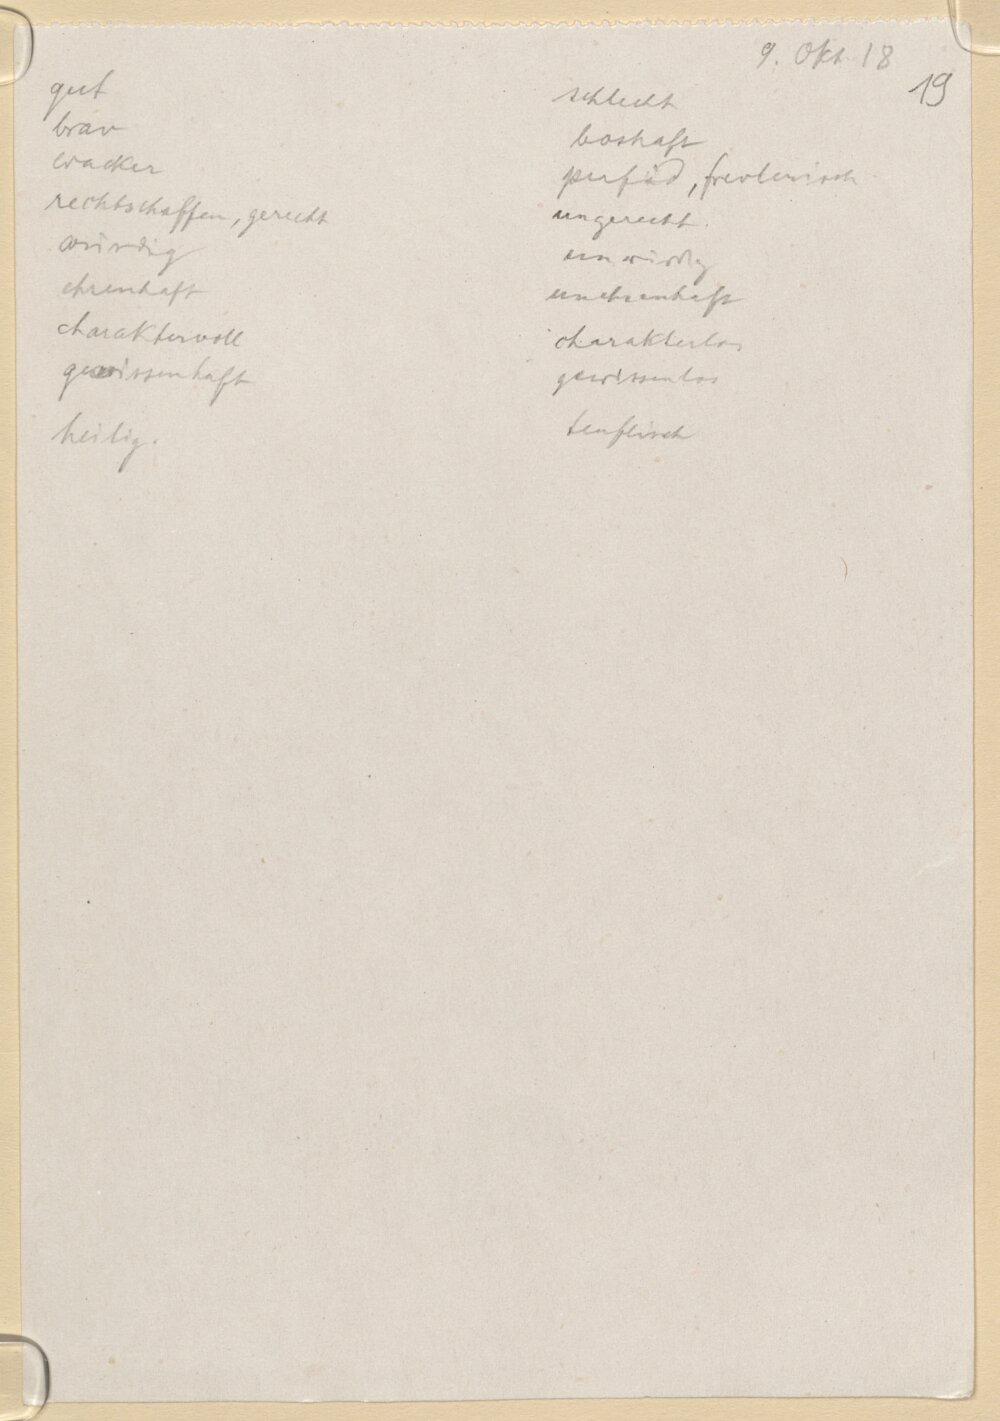 9. Okt 18
19
gut schlecht
brav boshaft
wacker perfid, frevlerisch
rechtschaffen, gerecht ungerecht.
würdig unwürdig
ehrenhaft unehrenhaft
charaktervoll charakterlos
gewissenhaft gewissenlos
heilig. teuflisch